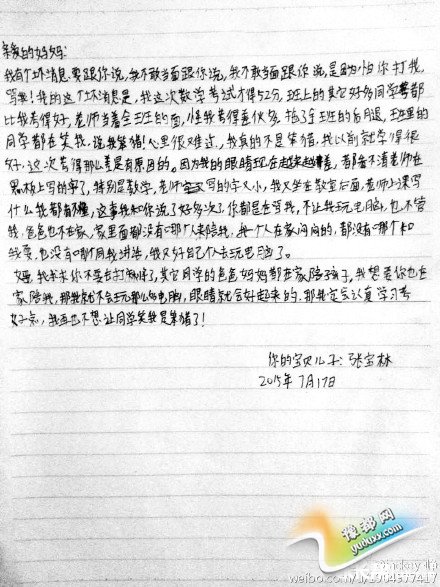 亲爱的妈妈:
我有个坏消息要跟你说,我不敢当面跟你说,我不敢当面跟你说,是因为怕你打我,
骂我!我的这个坏消息是,我这次数学考试才得52分,班上的其它好多同学都
比我考得好,老师当着全班的面,怪我考得差伙多,拖了全班的后退,班里的
同学都在笑我,说我笨猪!心里很难过,我真的不是笨猪,我以前就学得很
好,这次考得那么差是有原因的。因为我的眼睛现在越来越差,都看不清老师在
黑板上写的字了,特别是数学,老师写的字又小,我又坐在教室后面,老师上课写
什么我都不懂,这事我和你说了好多次了,你都是在骂我,不让我玩电脑,也不管
我,爸爸也不在家,家里面都没有哪个来陪我,每一个人在家闷闷的,都没有哪个和
我耍,也没有哪个同我讲话,我只好自个人去玩电脑了。
妈,我求求你不要去打麻将了,其它同学的爸爸妈妈都在家陪孩子,我想要你也在
家陪我,那我就不会玩那么多电脑,眼睛就会好起来的,那我定会认真学习考
好点,我再也不想让同学笑我是笨猪了!
你的宝贝儿子:张宝林
2015年7月17日
豫都网
yuduxx.com